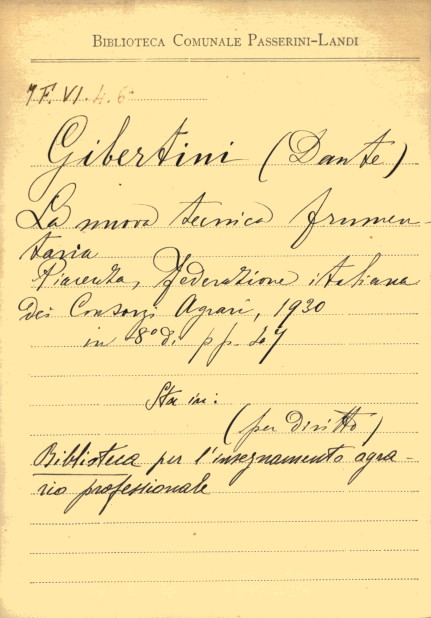 BIBLIOTECA COMUNALE PASSERINI-LANDI
7F.VI.4.6
Gibertini (Dante)
La nuova tecnica frumen-
taria
Piacenza, Federazione italiana
dei Consorzi Agrari, 1930
in 8º d. pp. 47
Sta in:
(per diritto)
Biblioteca per l'insegnamento agra-
rio professionale